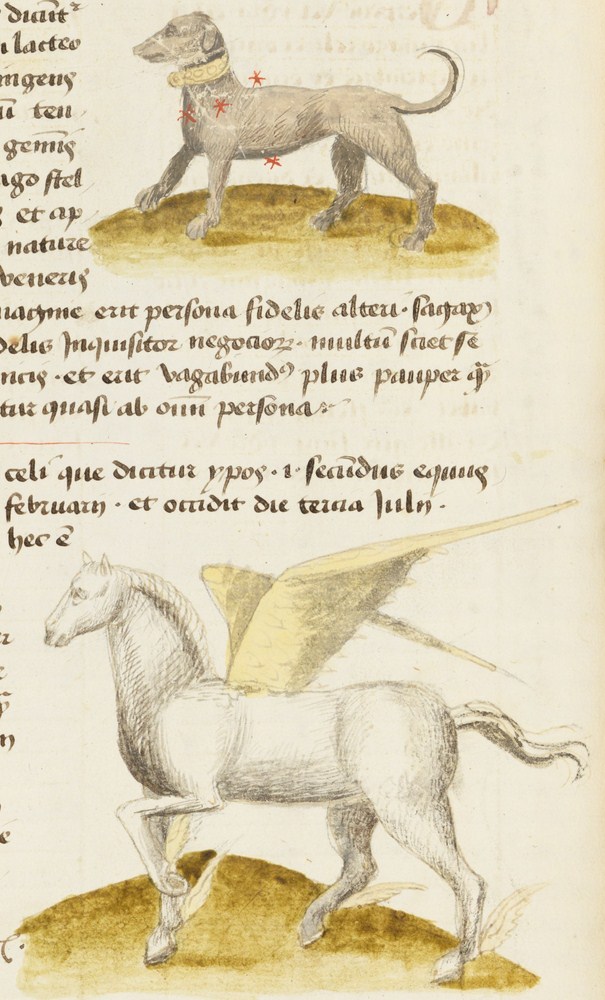 dicūtr
lacteo
ingens
ten
gemīs
ago stel
et ap
nature
veneris
ymagine erit persona fidelis alteri · sagax
fidelis Inquisitor negocioꝝ · multū sciet se
et erit vagabundꝰ plus pauper qͣ̄
tur quasi ab om̄i persona ·
celi que dicitur ypos · i · secūdus equus
februarij · et occidit die tercia Julij ·
hec ē